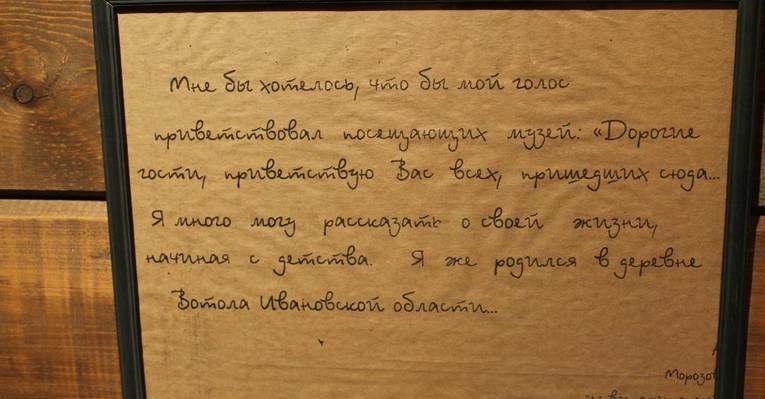 Мне бы хотелось, что бы мой голос
приветствовал посещающих музей: «Дорогие
гости, приветствую Вас всех, пришедших сюда...
Я много могу рассказать о своей жизни,
начиная с детства. Я же родился в деревне
Вотола Ивановской области...